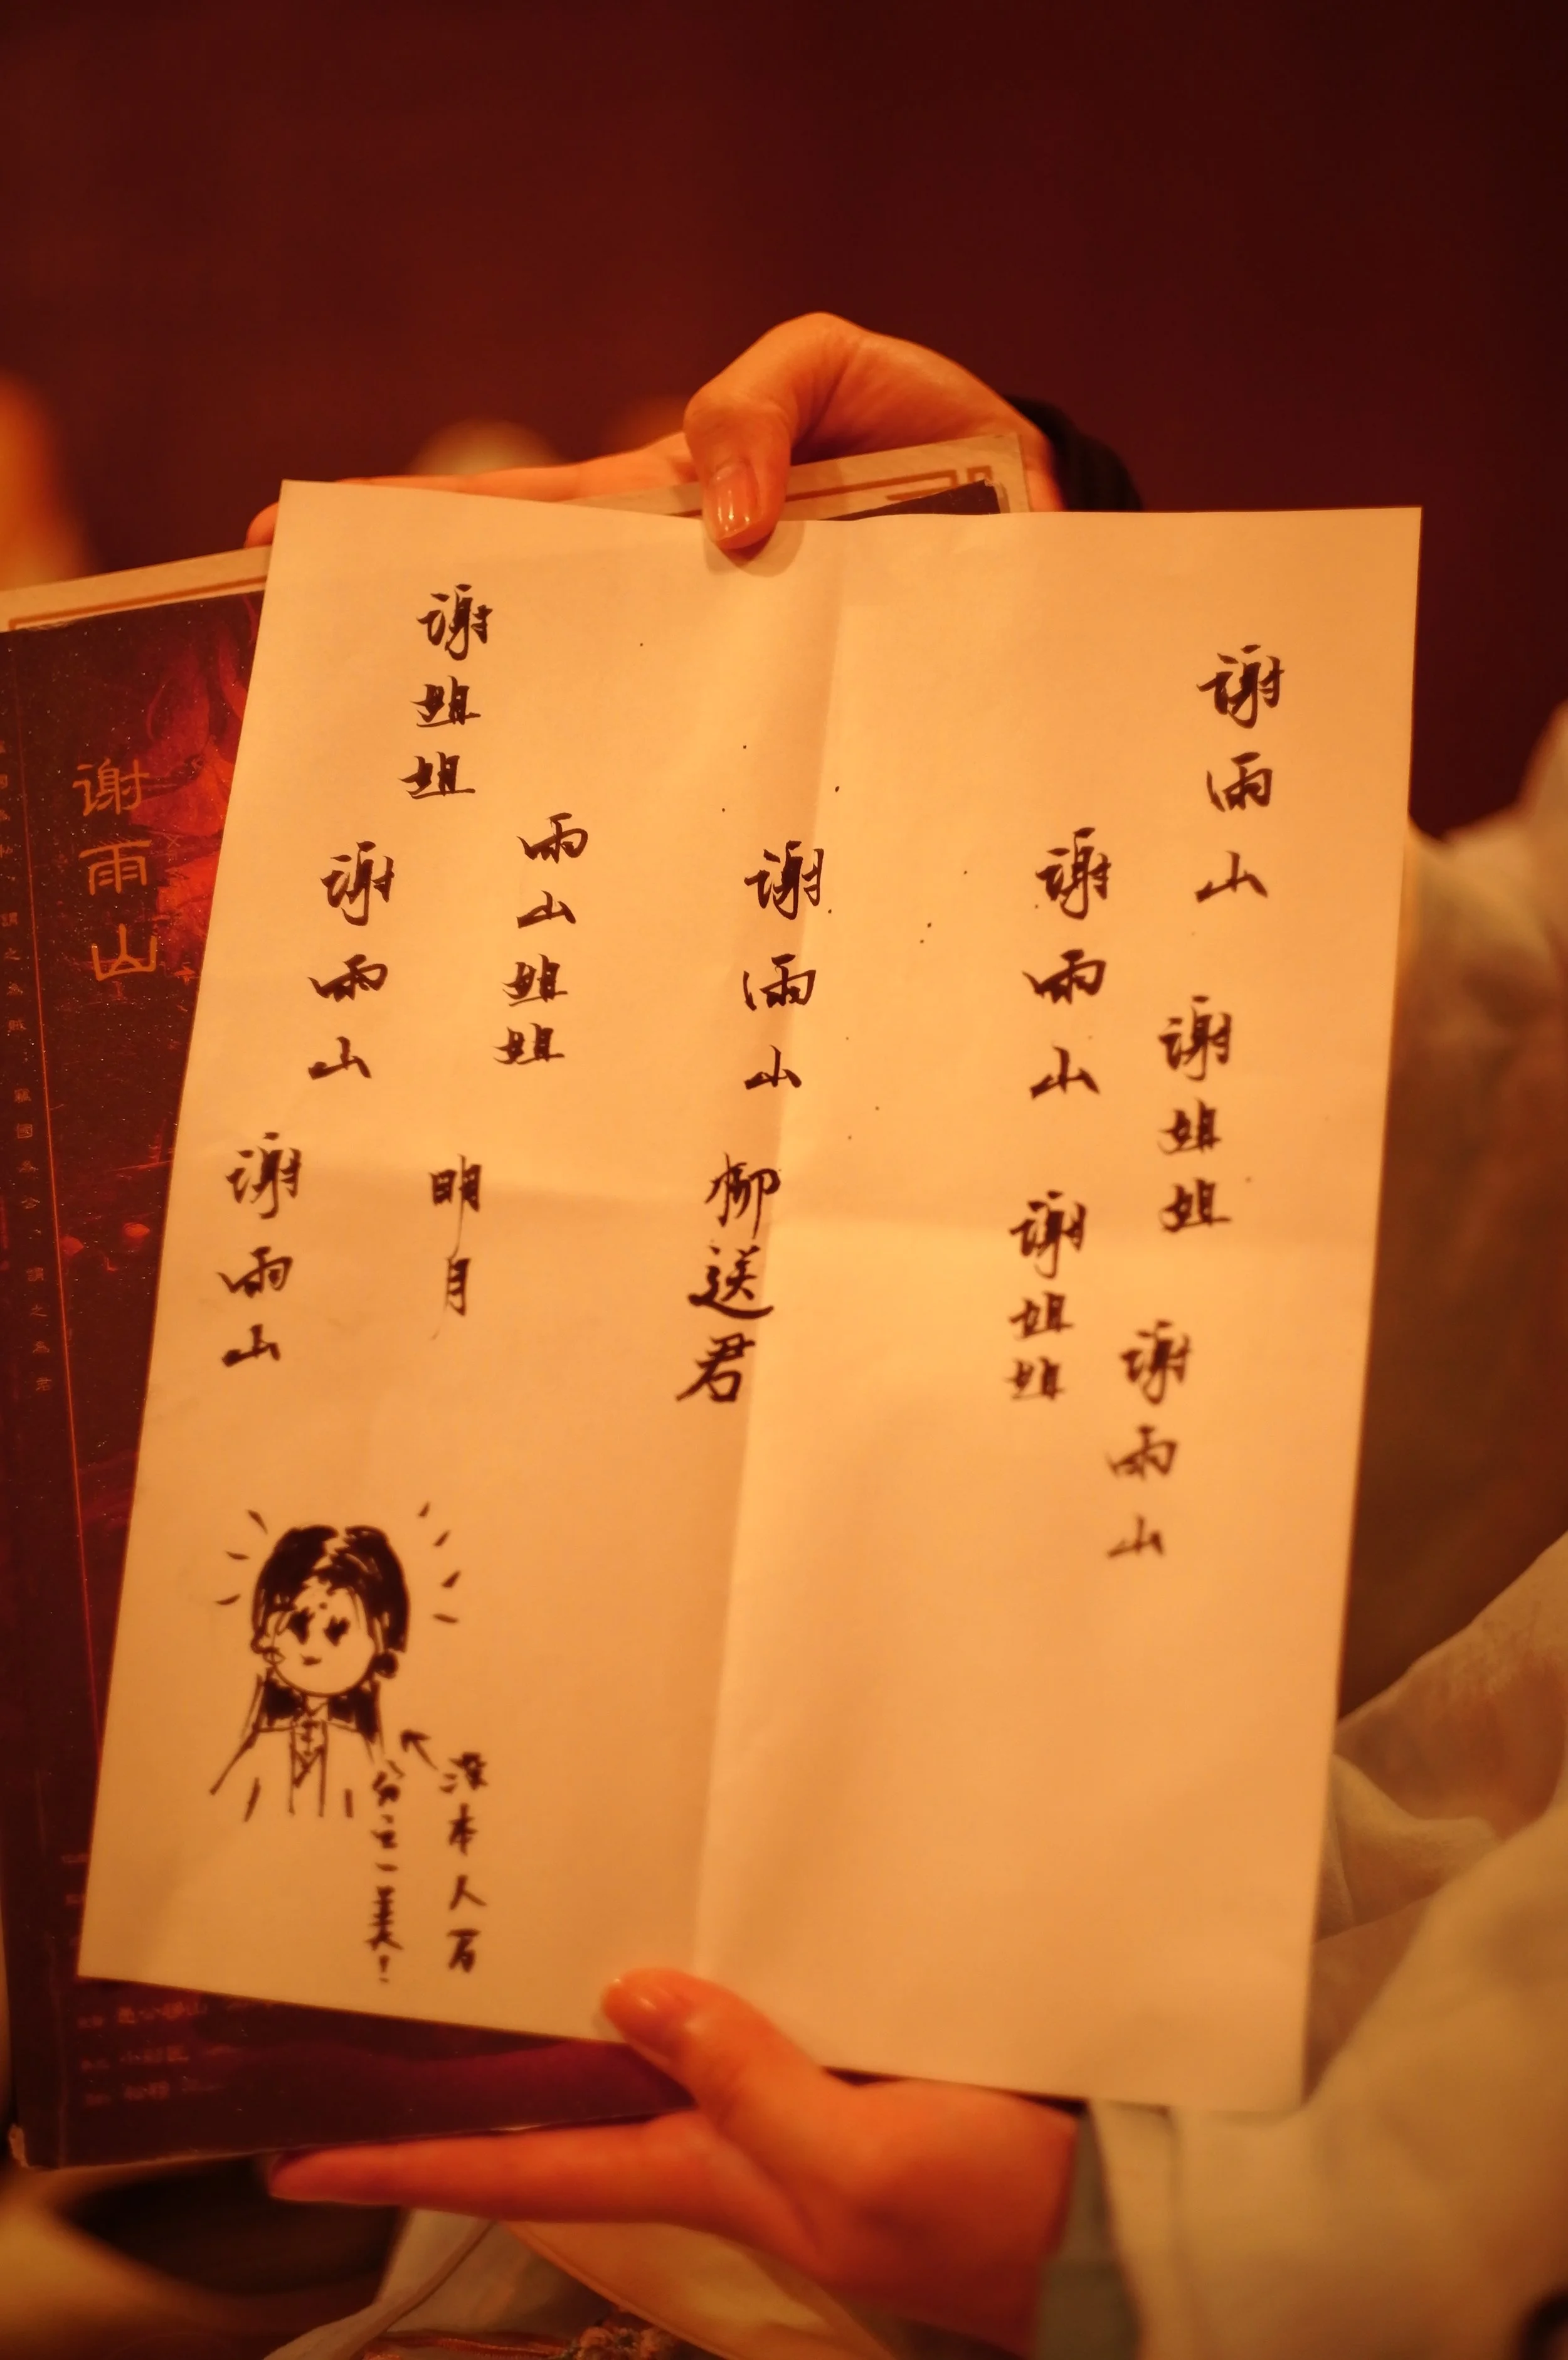 谢雨山
谢姐姐
谢雨山
谢雨山
谢姐姐
谢雨山
柳送君
雨山姐姐
明月
谢姐姐
谢雨山
谢雨山
没本人万
分之一美!
谢雨山